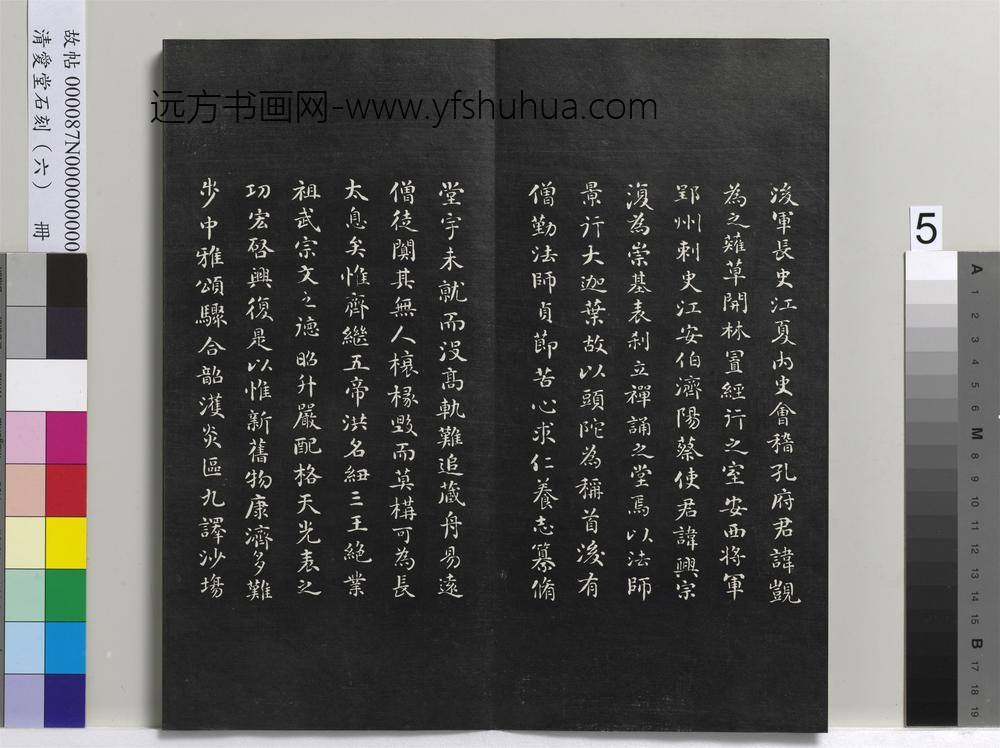 故帖 000087N000000000
清愛堂石刻（六） 冊
远方书画网-www.yfshuhua.com
後軍長史江夏內史會稽孔府君諱覬
為之薙草開林置經行之室安西將軍
郢州刺史江安伯濟陽蔡使君諱興宗
復為崇基表刹立禪誦之堂焉以法師
景行大迦葉故以頭陀為稱首後有
僧勤法師貞節苦心求仁養志纂脩
堂宇未就而沒高軌難追藏舟易遠
僧徒闃其無人榱椽毀而莫構可為長
太息矣惟齊繼五帝洪名紐三王絕業
祖武宗文之德昭升嚴配格天光表之
功宏啓興復是以惟新舊物康濟多難
步中雅頌驟合韶濩炎區九譯沙場
5
A 1 2 3 4 5 6 M 8 9 10 11 12 13 14 15 B 17 18 19